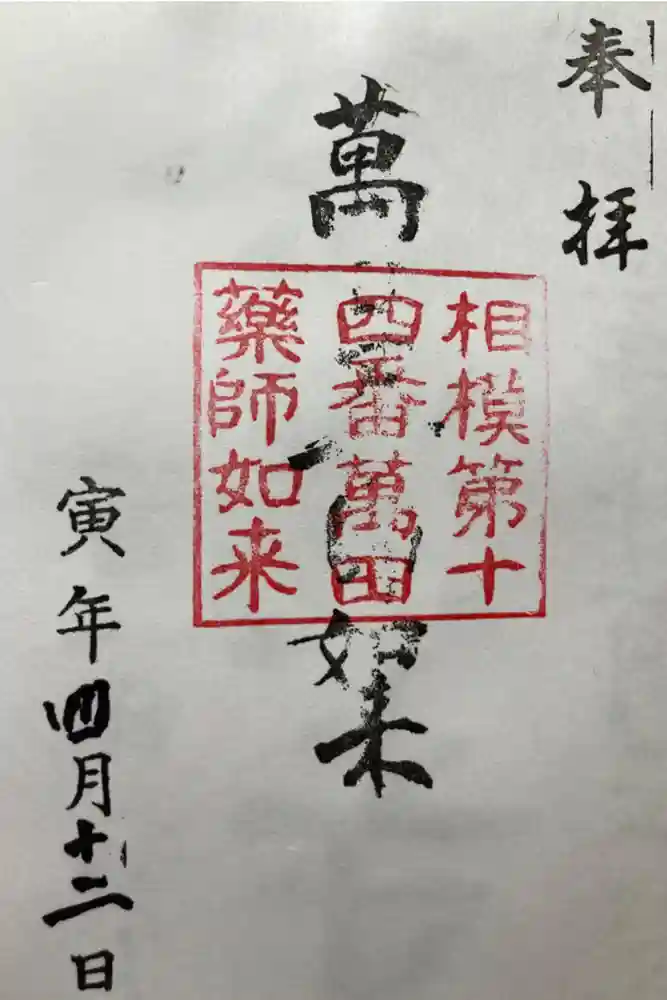 奉拝
相模第十
四番萬田
薬師如来
萬
如来
寅年四月十二日